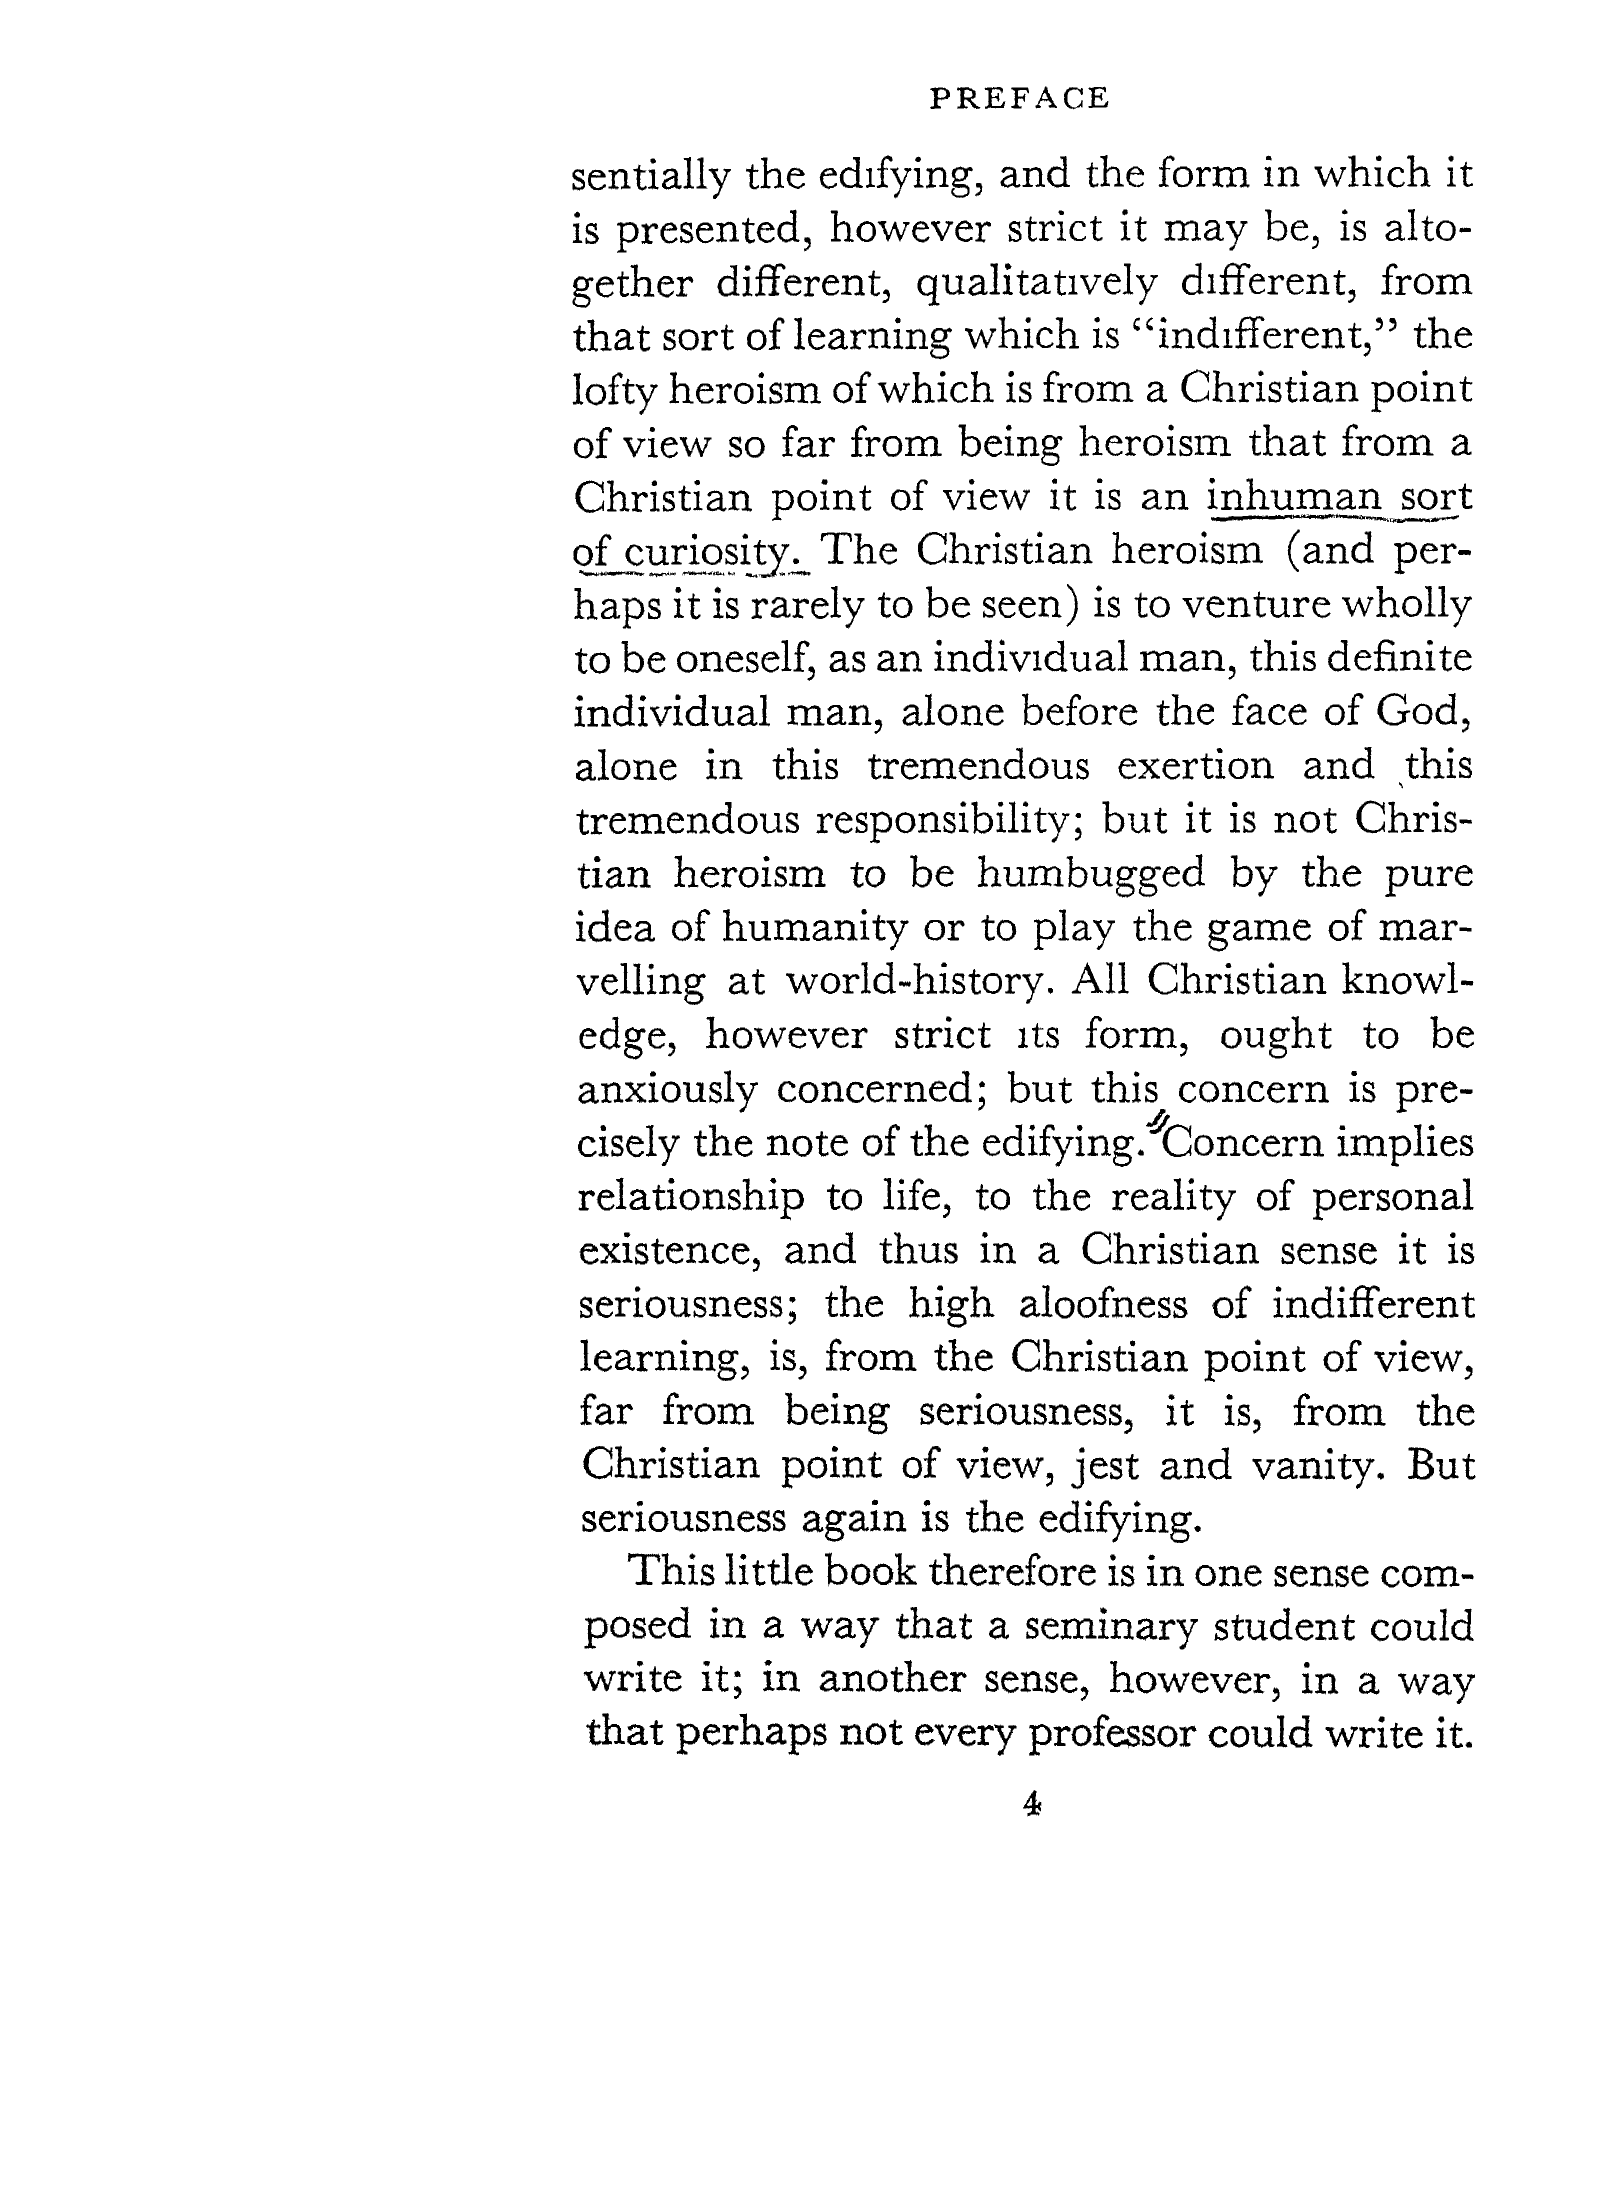 PREFACE
sentially the edifying, and the form in which it
is presented, however strict it may be, is alto-
gether different, qualitatively different, from
that sort of learning which is “indifferent,” the
lofty heroism of which is from a Christian point
of view so far from being heroism that from a
Christian point of view it is an inhuman sort
of curiosity. The Christian heroism (and per-
haps it is rarely to be seen) is to venture wholly
to be oneself, as an individual man, this definite
individual man, alone before the face of God,
alone in this tremendous exertion and this
tremendous responsibility; but it is not Chris-
tian heroism to be humbugged by the pure
idea of humanity or to play the game of mar-
velling at world-history. All Christian knowl-
edge, however strict its form, ought to be
anxiously concerned; but this concern is pre-
cisely the note of the edifying. Concern implies
relationship to life, to the reality of personal
existence, and thus in a Christian sense it is
seriousness; the high aloofness of indifferent
learning, is, from the Christian point of view,
far from being seriousness, it is, from the
Christian point of view, jest and vanity. But
seriousness again is the edifying.
This little book therefore is in one sense com-
posed in a way that a seminary student could
write it; in another sense, however, in a way
that perhaps not every professor could write it.
4